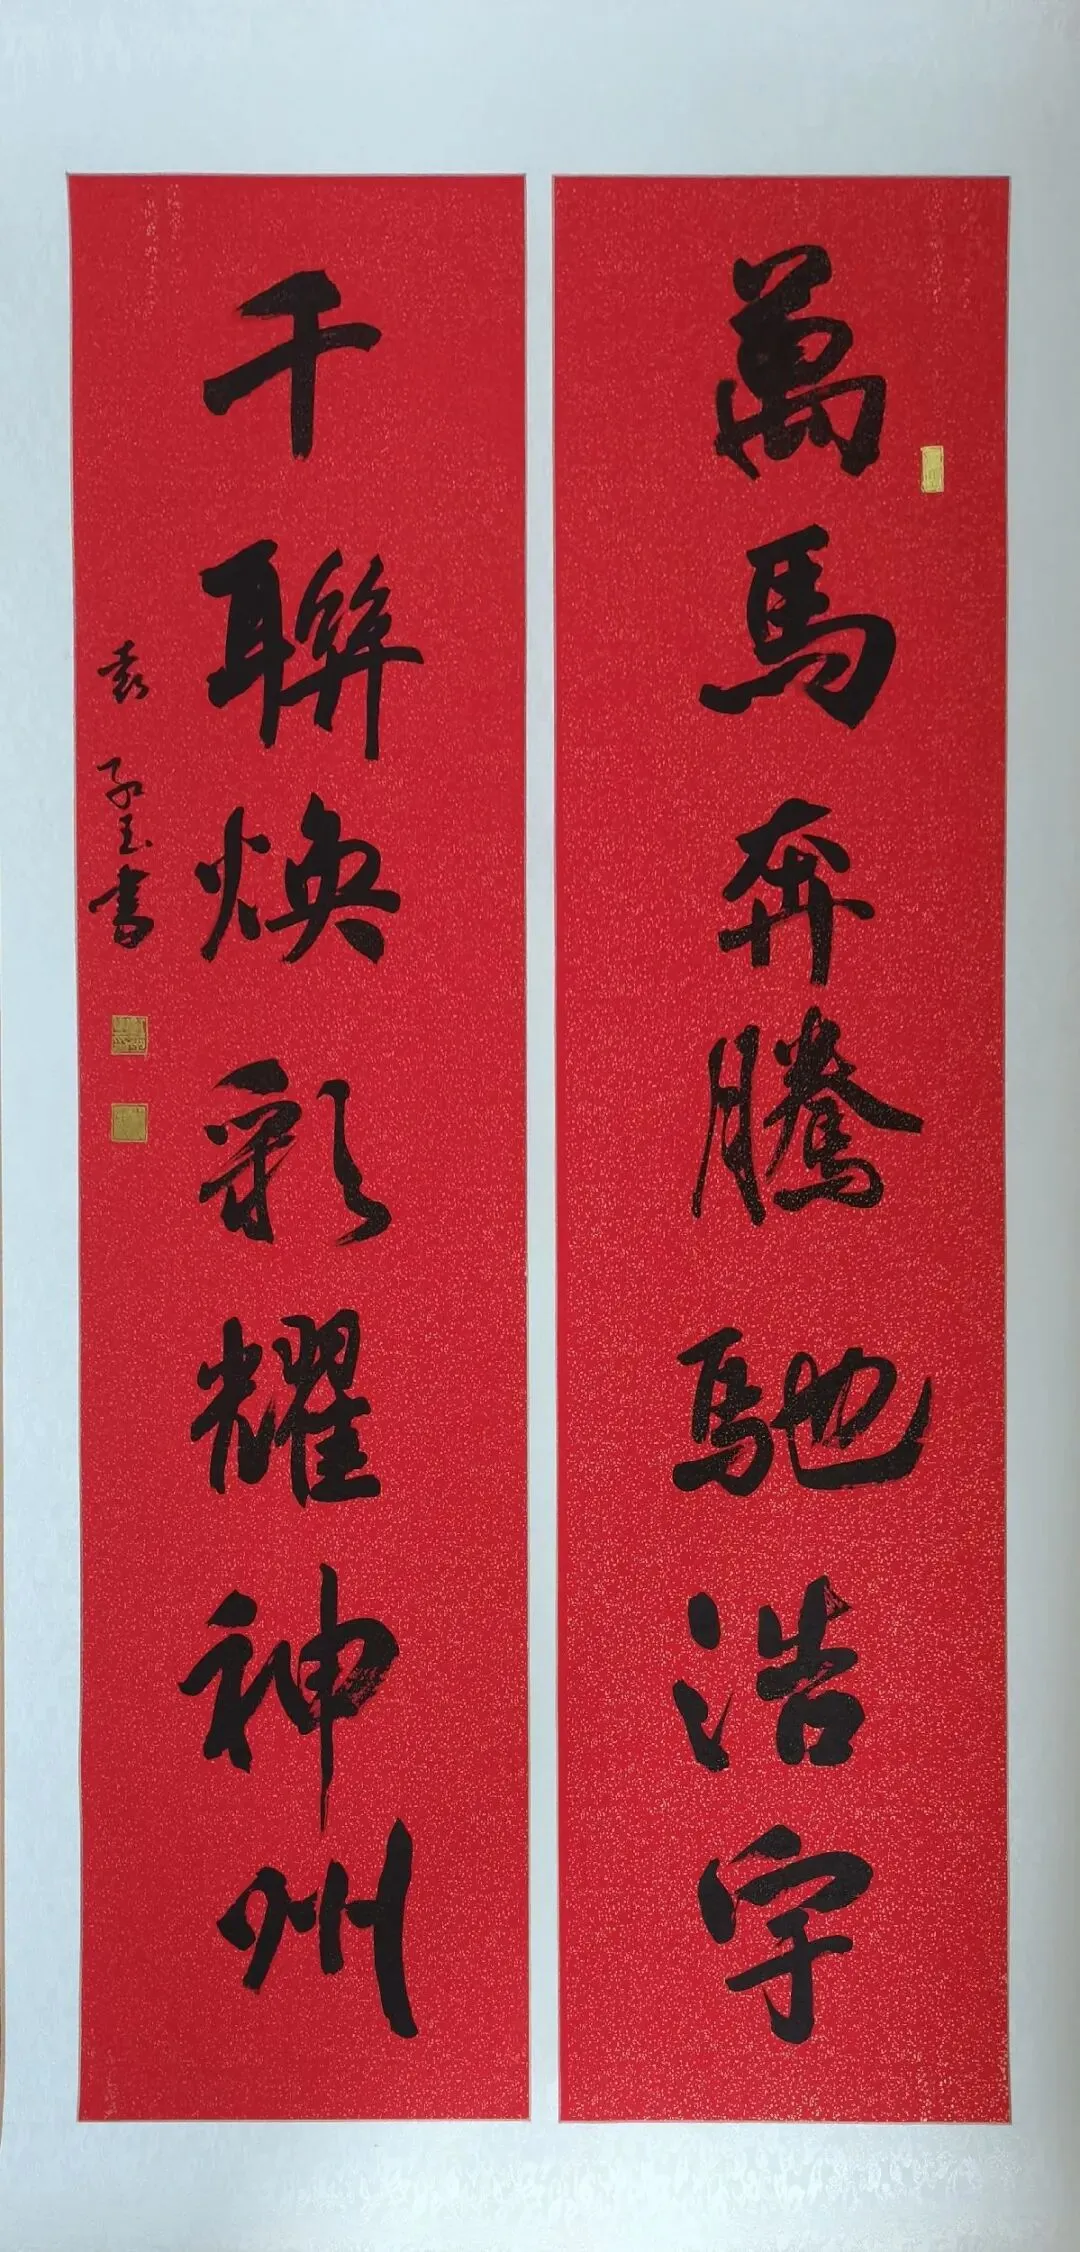 萬馬奔騰馳浩宇
千聯焕彩耀神州
袁孔玉書